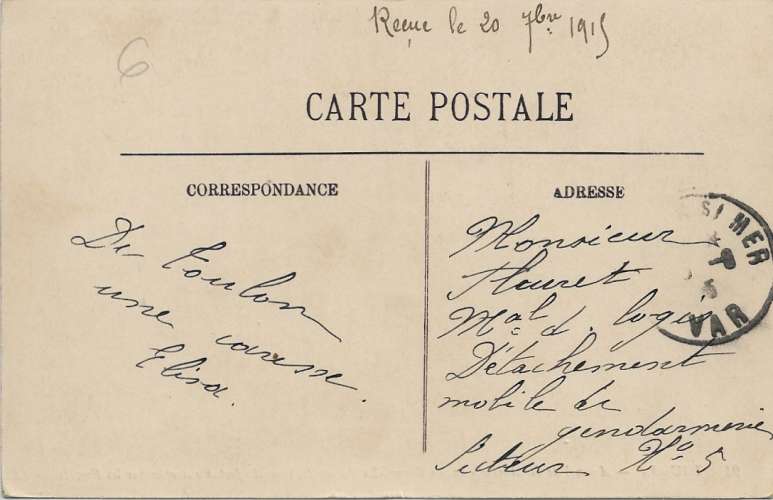 Reçue le 20 7bre 1915
6
CARTE POSTALE
CORRESPONDANCE
De Toulon
une caresse.
Elisa.
ADRESSE
Monsieur
Fleuret
Mal d. logis
Détachement
mobile de
gendarmerie
Secteur No 5
S/ MER
VAR